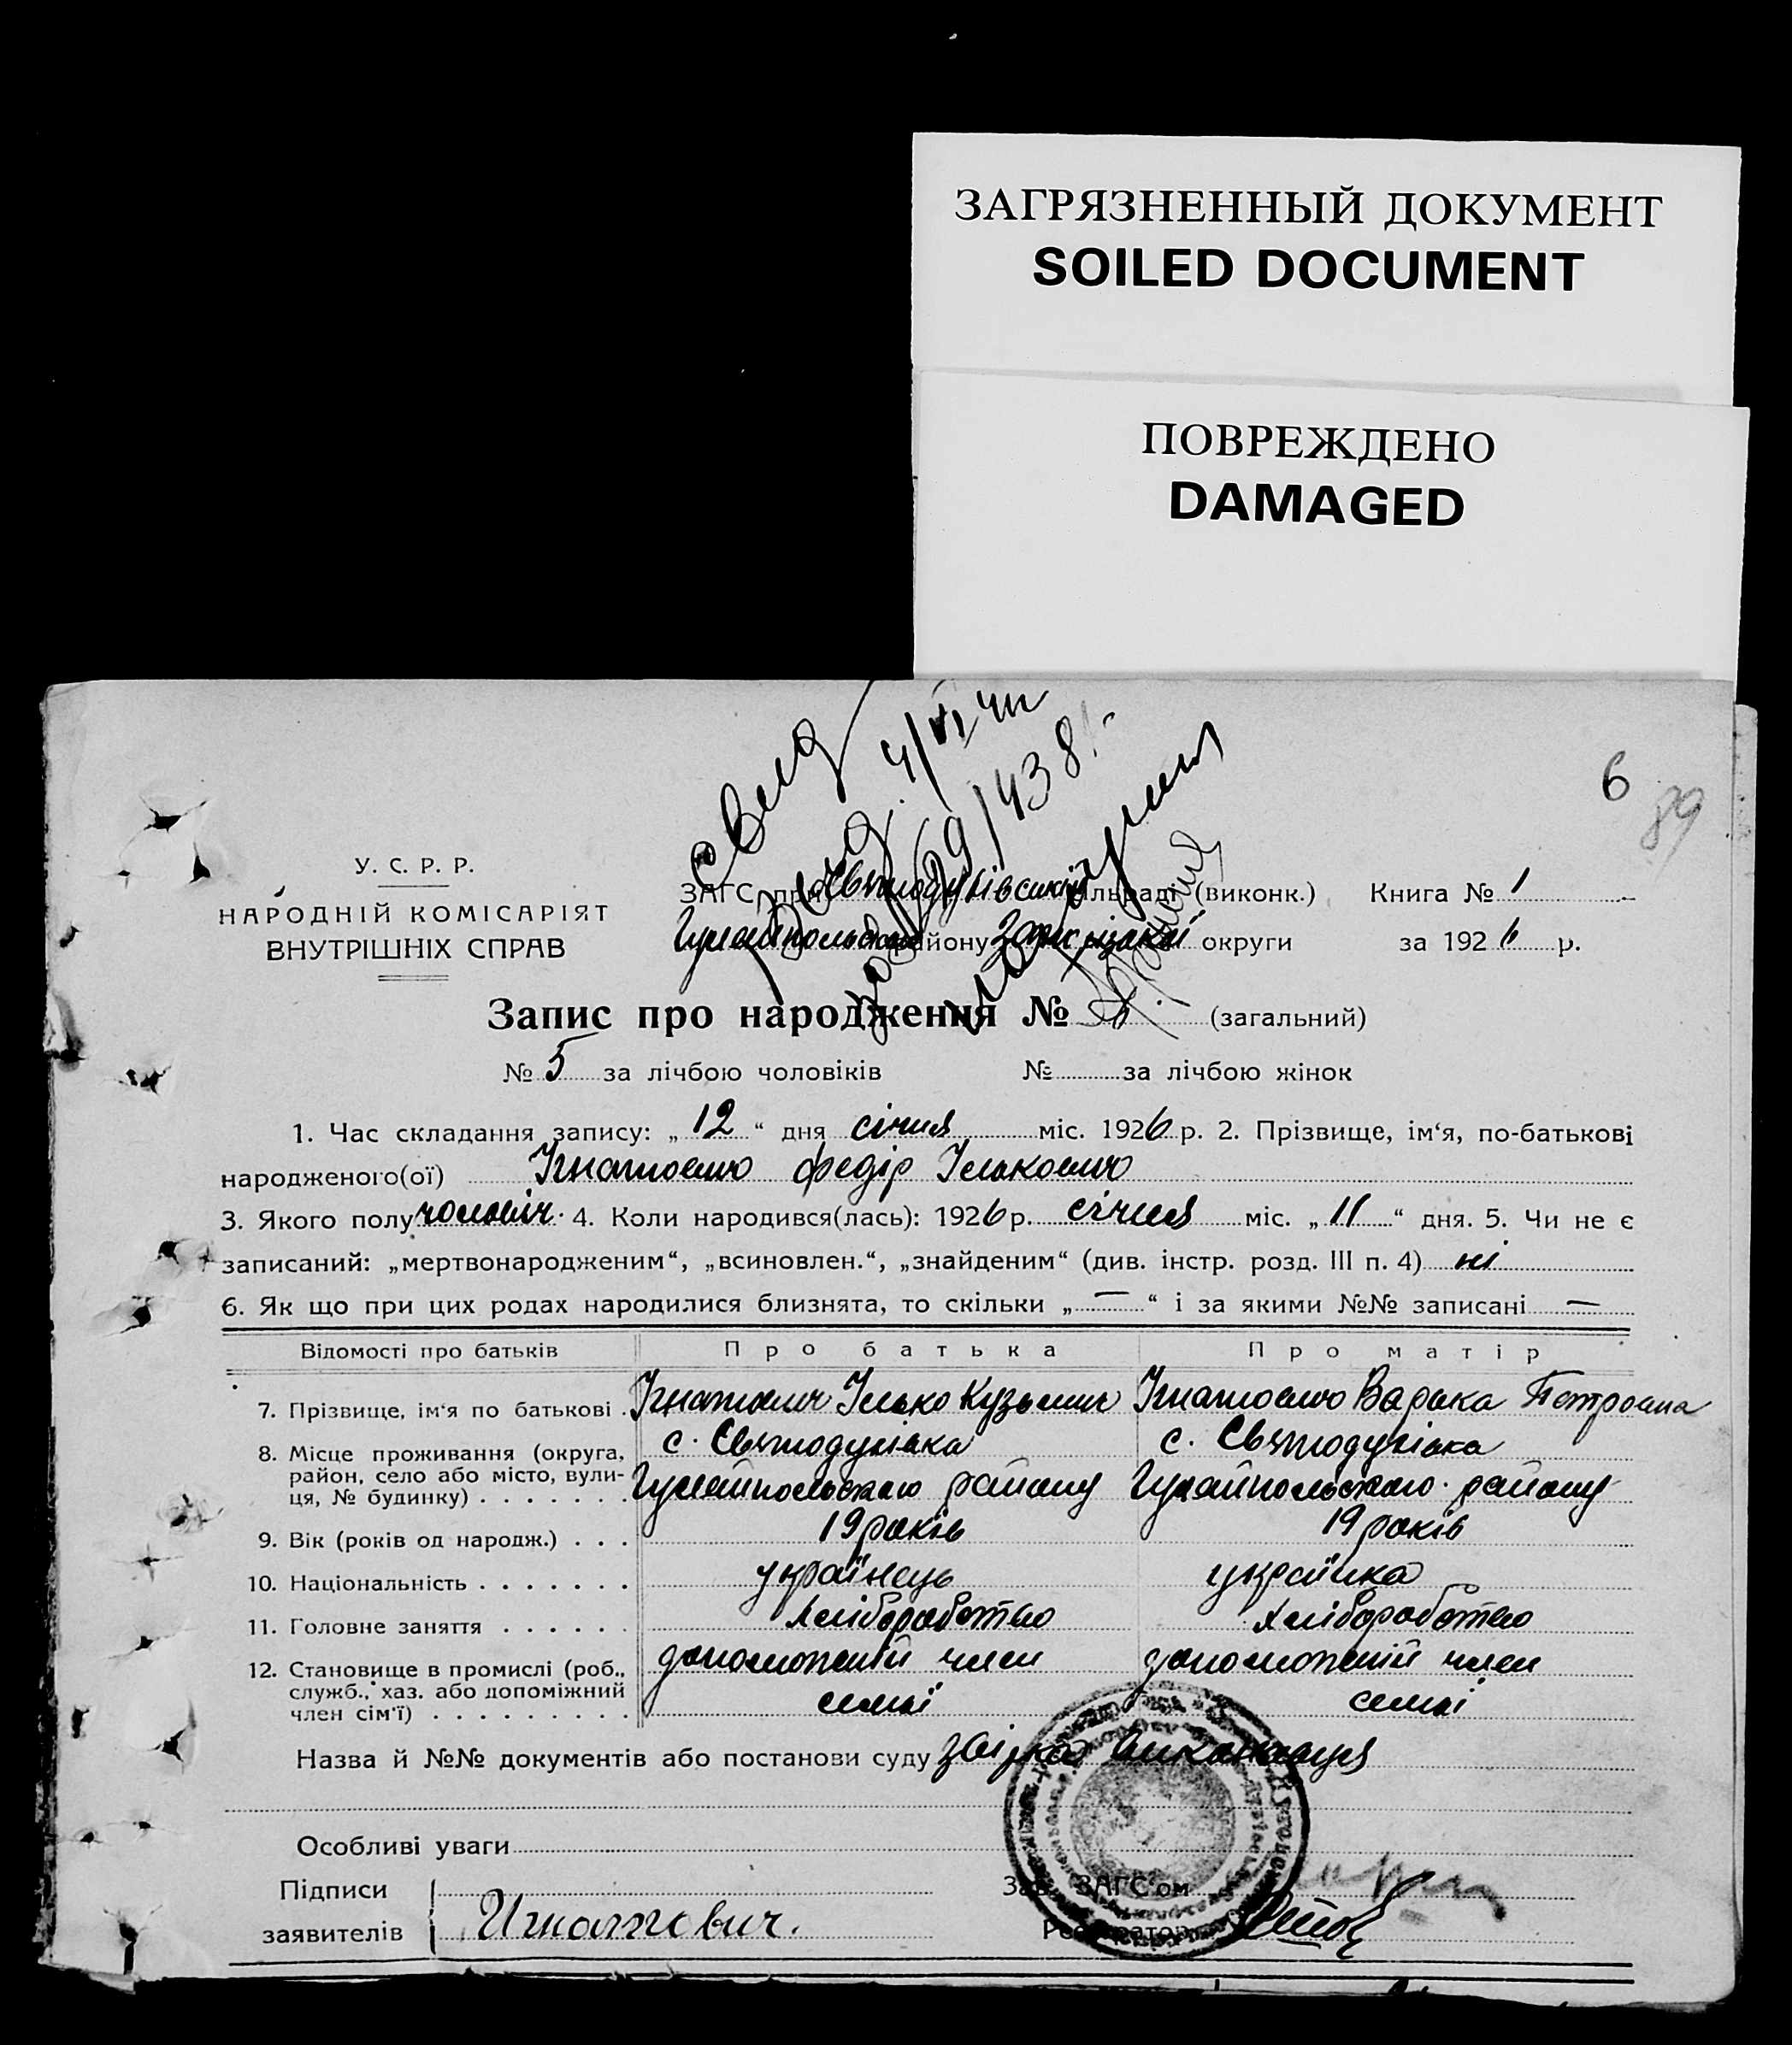 ЗАГРЯЗНЕННЫЙ ДОКУМЕНТ
SOILED DOCUMENT
ПОВРЕЖДЕНО
DAMAGED
6
89
У. С. Р. Р.
НАРОДНІЙ КОМІСАРІЯТ
ВНУТРІШНІХ СПРАВ
ЗАГС при Святодухівській сільраді (виконк.) Книга № 1
району Запорізької округи за 1926 р.
Запис про народження № (загальний)
№ 5 за лічбою чоловіків № за лічбою жінок
1. Час складання запису: „ 12 “ дня січня міс. 1926 р. 2. Прізвище, ім‘я, по-батькові
народженого(ої) Ігнатович Федір Ількович
3. Якого полу чоловіч. 4. Коли народився(лась): 1926 р. січня міс. „ 11 “ дня. 5. Чи не є
записаний: „мертвонародженим“, „всиновлен.“, „знайденим“ (див. інстр. розд. III п. 4) ні
6. Як що при цих родах народилися близнята, то скільки „ — “ і за якими №№ записані —
Відомості про батьків Про батька Про матір
7. Прізвище, ім‘я по батькові . Ігнатович Ілько Кузьмич Ігнатович Варька Петровна
8. Місце проживання (округа, с. Святодухівка с. Святодухівка
район, село або місто, вули-
ця, № будинку) . . . . . . . Гуляйпольского району Гуляйпольского району
9. Вік (років од народж.) . . . 19 років 19 років
10. Національність . . . . . . . українець українка
11. Головне заняття . . . . . . хліборобство хліборобство
12. Становище в промислі (роб., допоможній член допоможній член
служб., хаз. або допоміжний
член сім‘ї) . . . . . . . . . семьї семьї
Назва й №№ документів або постанови суду
Особливі уваги
Підписи Зав. ЗАГС‘ом
заявителів Игнатович. Реєстратор